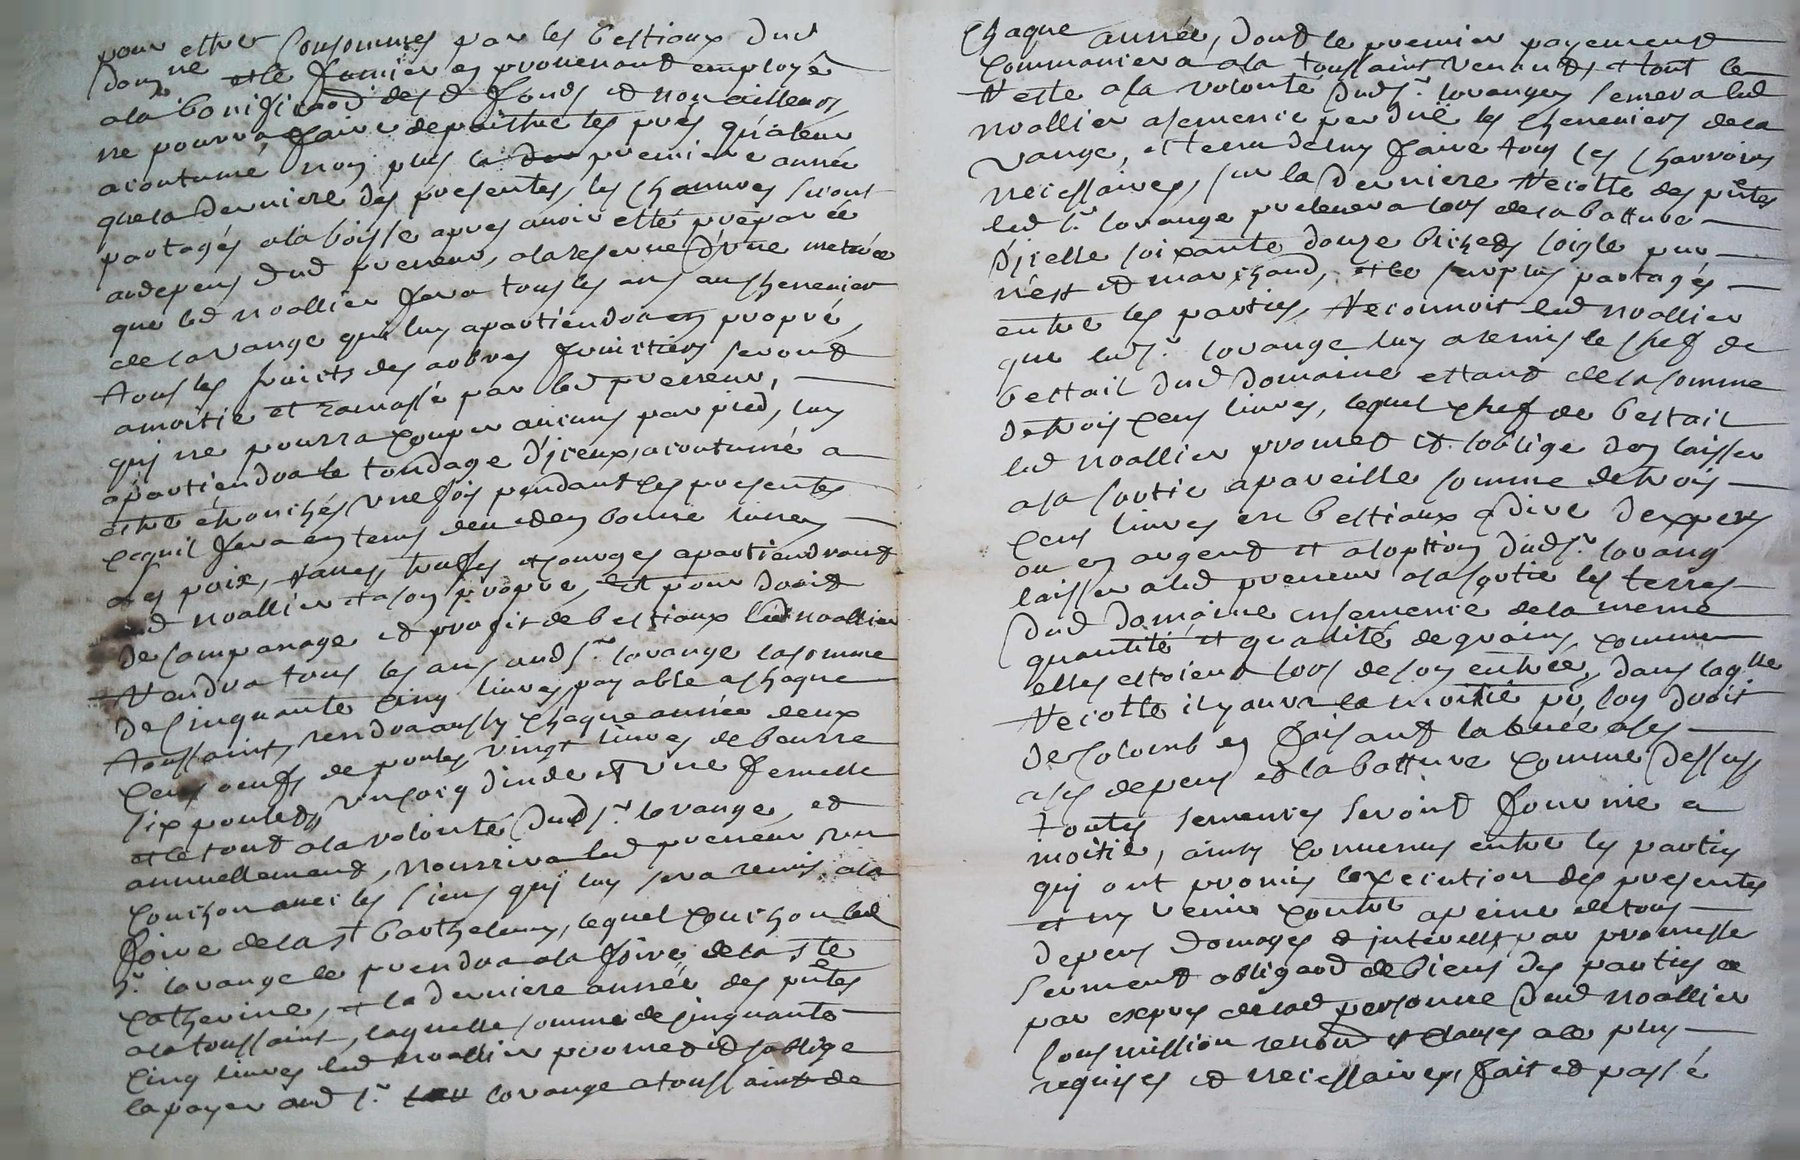 pour estre consommés par les bestiaux dud
dom.ne et le fumier en provenant employé
a la bonifica.on des d fonds et non ailleurs,
ne pourra, faire depaistre les prés qu'a leur
acoutumé non plus la premiere année
que la derniere des presentes, les chanvres seront
partagés a la boisse apres avoir etté preparée
au depens dud preneur, a la reserve d'une meterée
que led noallier fera tous les ans au chenevier
de la vange qui luy apartiendra en propre,
tous les fruits des arbres fruitiers seront
a moitié et ramassé par led preneur,
qui ne pourra couper aucuns par pied, luy
apartiendra le tondage d'jceux, acoutumé a
estre ébranchés une fois pendant les presentes
ce quil fera en tems deu et en bonne lunes
les poix, raves, truffes et courges apartiendront
aud noallier et a son propre, et pour droit
de companage et profit de bestiaux led noallier
rendra tous les ans aud s.r lavange la somme
de cinquante cinq livres payable a chaque
toussaints, rendra aussy chaque année deux
cens oeufs de poules, vingt livres de beurre
six poulets, un coq dinde et une femelle
et le tout a la volonté dud s.r lavange, et
annuellement, nourrira led preneur un
couchon avec les siens qui luy sera remis a la
foire de la s.t barthelemy, lequel couchon led
s.r lavange le prendra a la foire de la s.te
catherine, et la derniere année des p.ntes
a la toussaint, laquelle somme de cinquante
cinq livres led noallier promet et soblige
la payer aud s.r lavange a toussaint de
chaque année, dont le premier payement
commancera a la toussaint venant, et tout le
reste a la volonté dud s.r lavange, semera led
noallier a semence perdue les cheneviers de la
vange, et tenu de luy faire tous les charrois
necessaires, sur la derniere recolte des p.ntes
led s.r lavange prelevera lors de la batture
d'jcelle soixante douze bichets soigle pur
nest et marchand, et le surplus partagés
entre les parties, reconnoit led noallier
que led s.r lavange luy a remis le chef de
bestail dud domaine estant de la somme
de trois cens livres, lequel chef de bestail
led noallier promet et soblige den laisser
a la sortie a pareille somme de trois
cens livres en bestiaux a dire dexpers
ou en argent et a loption dud s.r lavang
laissera led preneur a la sortie les terres
dud domaine ensemencé de la meme
quantité et qualité de grains, comme
elles estoient lors de son entrée, dans laq.lle
recolte il y aura la moitié p.r son droit
de colomb en faisant la levée a ses
a ses depens et la batture comme dessus
toutes semences seront fournie a
moitié, ainsy convenus entre les parties
qui ont promis lexecution des presentes
et ny venir contre a peine de tous
depens domages et jnterests, par promesse
serment obligaōd de biens des parties et
par expres de lad personne dud noallier
sousmission renonō et clauses a ce plus
requises et necessaires, fait et passé